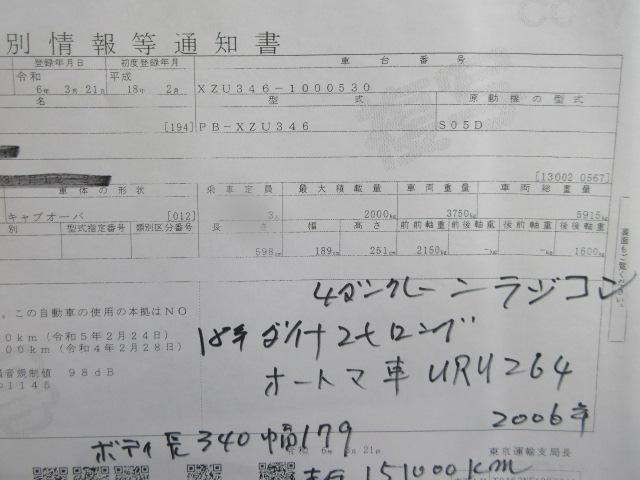 COPY
別情報等通知書
登録年月日 初度登録年月 車台番号
令和 平成
6年 3月 21日 18年 2月 XZU346-1000530
名 型式 原動機の型式
[194] PB-XZU346 S05D
[13002 0567]
車体の形状 乗車定員 最大積載量 車両重量 車両総重量
キャブオーバ [012] 3人 2000kg 3750kg 5915kg
別 型式指定番号 類別区分番号 長さ 幅 高さ 前前軸重 前後軸重 後前軸重 後後軸重
598cm 189cm 251cm 2150kg -kg -kg 1600kg
裏面もご覧ください。
4ダンクレーンラジコン
。この自動車の使用の本拠はNO
0km (令和5年2月24日)
00km (令和4年2月28日)
18年ダイナ2tロング
騒音規制値 98dB
1145
オートマ車 URU264
2006年
ボディ長340幅179
6年 3月21日
東京運輸支局長
151000km